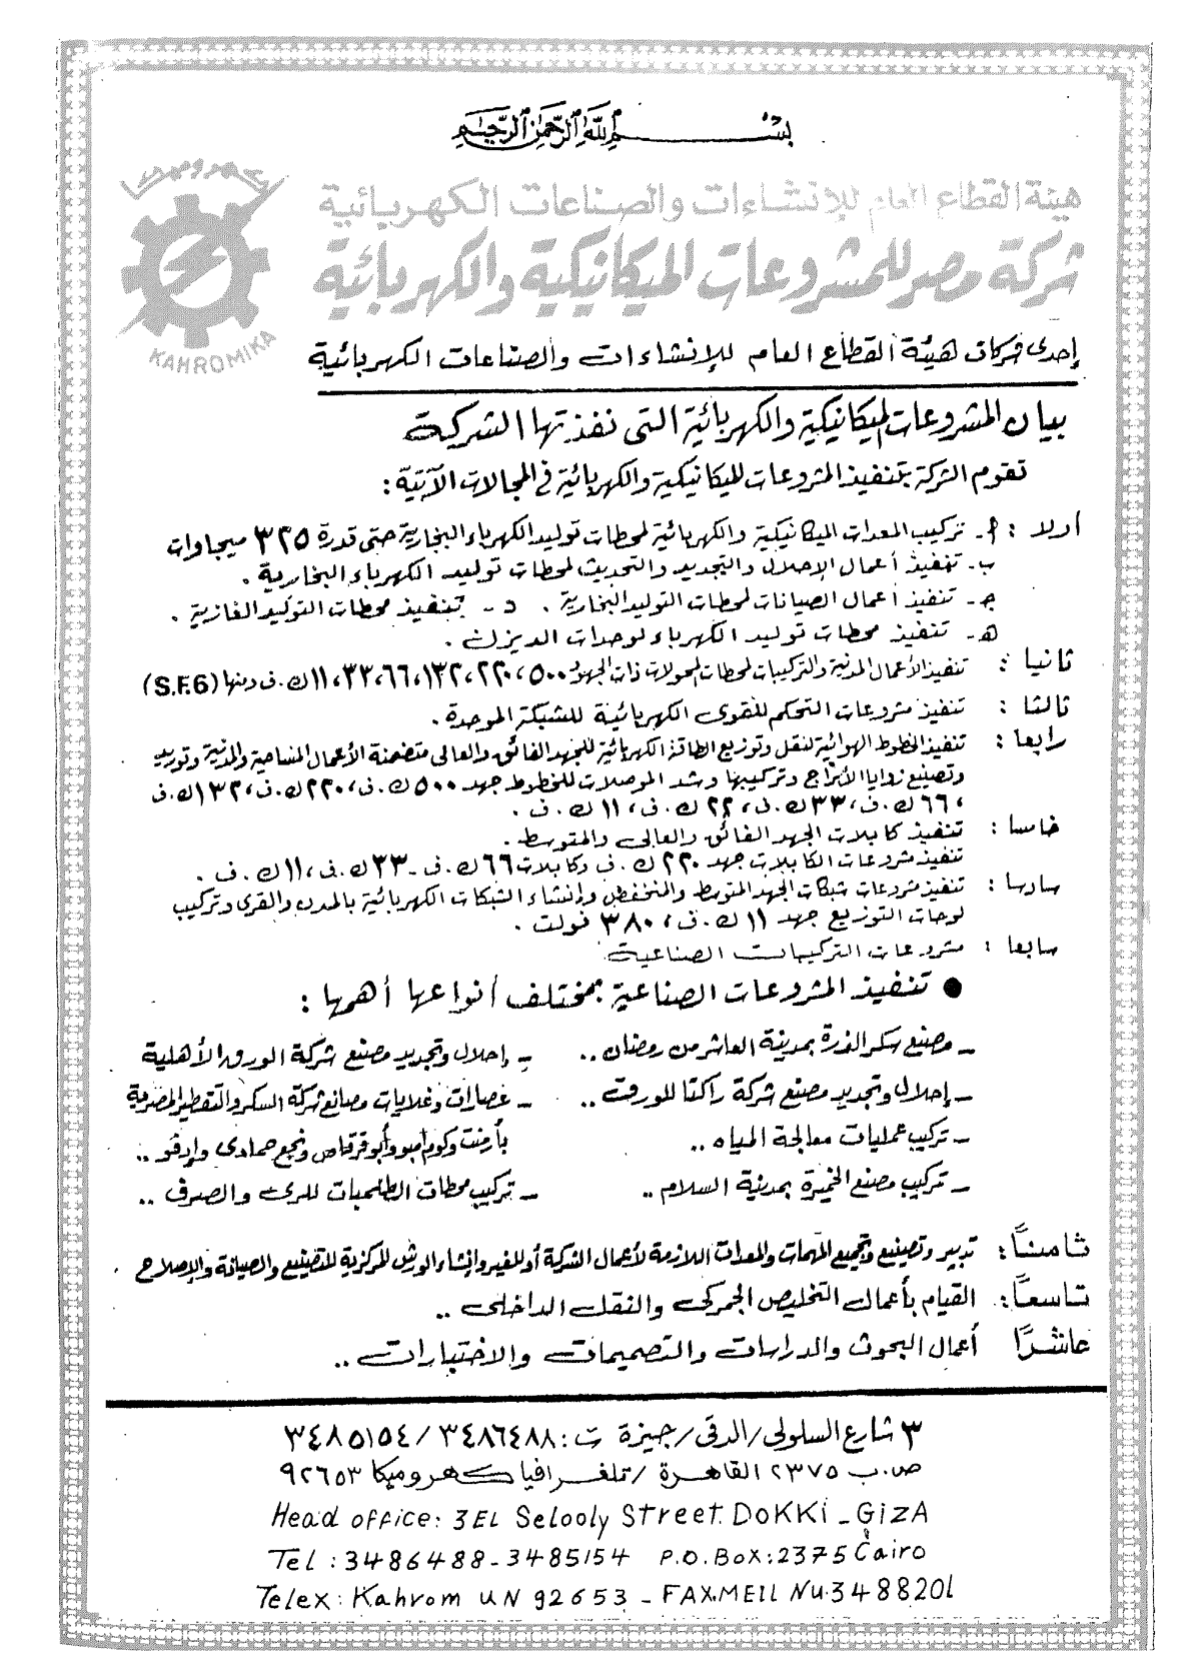 بسم الله الرحمن الرحيم
كهروميكا
KAHROMIKA
هيئة القطاع العام للإنشاءات والصناعات الكهربائية
شركة مصر للمشروعات الميكانيكية والكهربائية
إحدى شركات هيئة القطاع العام للإنشاءات والصناعات الكهربائية
بيان المشروعات الميكانيكية والكهربائية التى نفذتها الشركة
تقوم الشركة بتنفيذ المشروعات الميكانيكية والكهربائية فى المجالات الآتية :
أولا : أ - تركيب المعدات الميكانيكية والكهربائية لمحطات توليد الكهرباء البخارية حتى قدرة ٣٢٥ ميجاوات
ب - تنفيذ أعمال الإحلال والتجديد والتحديث لمحطات توليد الكهرباء البخارية .
جـ - تنفيذ أعمال الصيانات لمحطات التوليد البخارية . د - تنفيذ محطات التوليد الغازية .
هـ - تنفيذ محطات توليد الكهرباء لوحدات الديزل .
ثانيا : تنفيذ الأعمال المدنية والتركيبات لمحطات المحولات ذات الجهود ٥٠٠، ٢٢٠، ١٣٢، ٦٦، ٣٣، ١١ ك.ف ومنها (S.F.6)
ثالثا : تنفيذ مشروعات التحكم للقوى الكهربائية للشبكة الموحدة .
رابعا : تنفيذ الخطوط الهوائية لنقل وتوزيع الطاقة الكهربائية للجهد الفائق والعالى متضمنة الأعمال المساحية والمدنية وتوريد
وتصنيع زوايا الأبراج وتركيبها وشد الموصلات للخطوط جهد ٥٠٠ ك.ف، ٢٢٠ ك.ف، ١٣٢ ك.ف
، ٦٦ ك.ف، ٣٣ ك.ف، ٢٢ ك.ف، ١١ ك.ف .
خامسا : تنفيذ كابلات الجهد الفائق والعالى والمتوسط .
تنفيذ مشروعات الكابلات جهد ٢٢٠ ك.ف وكابلات ٦٦ ك.ف - ٣٣ ك.ف، ١١ ك.ف .
سادسا : تنفيذ مشروعات شبكات الجهد المتوسط والمنخفض وإنشاء الشبكات الكهربائية بالمدن والقرى وتركيب
لوحات التوزيع جهد ١١ ك.ف، ٣٨٠ فولت .
سابعا : مشروعات التركيبات الصناعية
● تنفيذ المشروعات الصناعية بمختلف أنواعها أهمها :
- مصنع سكر الذرة بمدينة العاشر من رمضان .. - إحلال وتجديد مصنع شركة الورق الأهلية
- إحلال وتجديد مصنع شركة راكتا للورق .. - عصارات وغلايات مصانع شركة السكر والتقطير المصرية
- تركيب عمليات معالجة المياه .. بأرمنت وكوم أمبو وأبو قرقاص ونجع حمادى وإدفو ..
- تركيب مصنع الخميرة بمدينة السلام .. - تركيب محطات الطلمبات للرى والصرف ..
ثامنًا : تدبير وتصنيع وتجميع المهمات والمعدات اللازمة لأعمال الشركة أو للغير وإنشاء الورش المركزية للتصنيع والصيانة والإصلاح .
تاسعًا : القيام بأعمال التخليص الجمركى والنقل الداخلى ..
عاشرًا أعمال البحوث والدراسات والتصميمات والاختبارات ..
٣ شارع السلولى / الدقى / جيزة ت : ٣٤٨٦٤٨٨ / ٣٤٨٥١٥٤
ص.ب ٢٣٧٥ القاهرة / تلغرافيا كهروميكا ٩٢٦٥٣
Head office: 3 EL Selooly Street. DOKKi - GizA
Tel : 3486488 - 3485154 P.O. BOX: 2375 Cairo
Telex: Kahrom UN 92653 - FAX.MEII Nu. 3488201